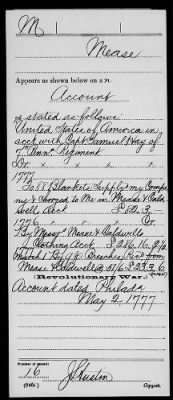 M
Mease
Appears as shown below on a
Account
as stated as follows:
United States of America in
acct with Capt Samuel Hay of
7th Penna Regiment
Dr. x x x x
1777
To 87 Blankets Supply'd my Compy
& Charged to Me in Mease & Cald
well Acct £ 52..3
1776 x x x Cr.
By Messrs Mease & Caldwells
Clothing Acct
March 1 By 19 Breeches Recd from
Mease & Caldwell
Revolutionary War.
Account dated Philada
May 2, 1777
Number of record:
16
J. Austin
Copyist.